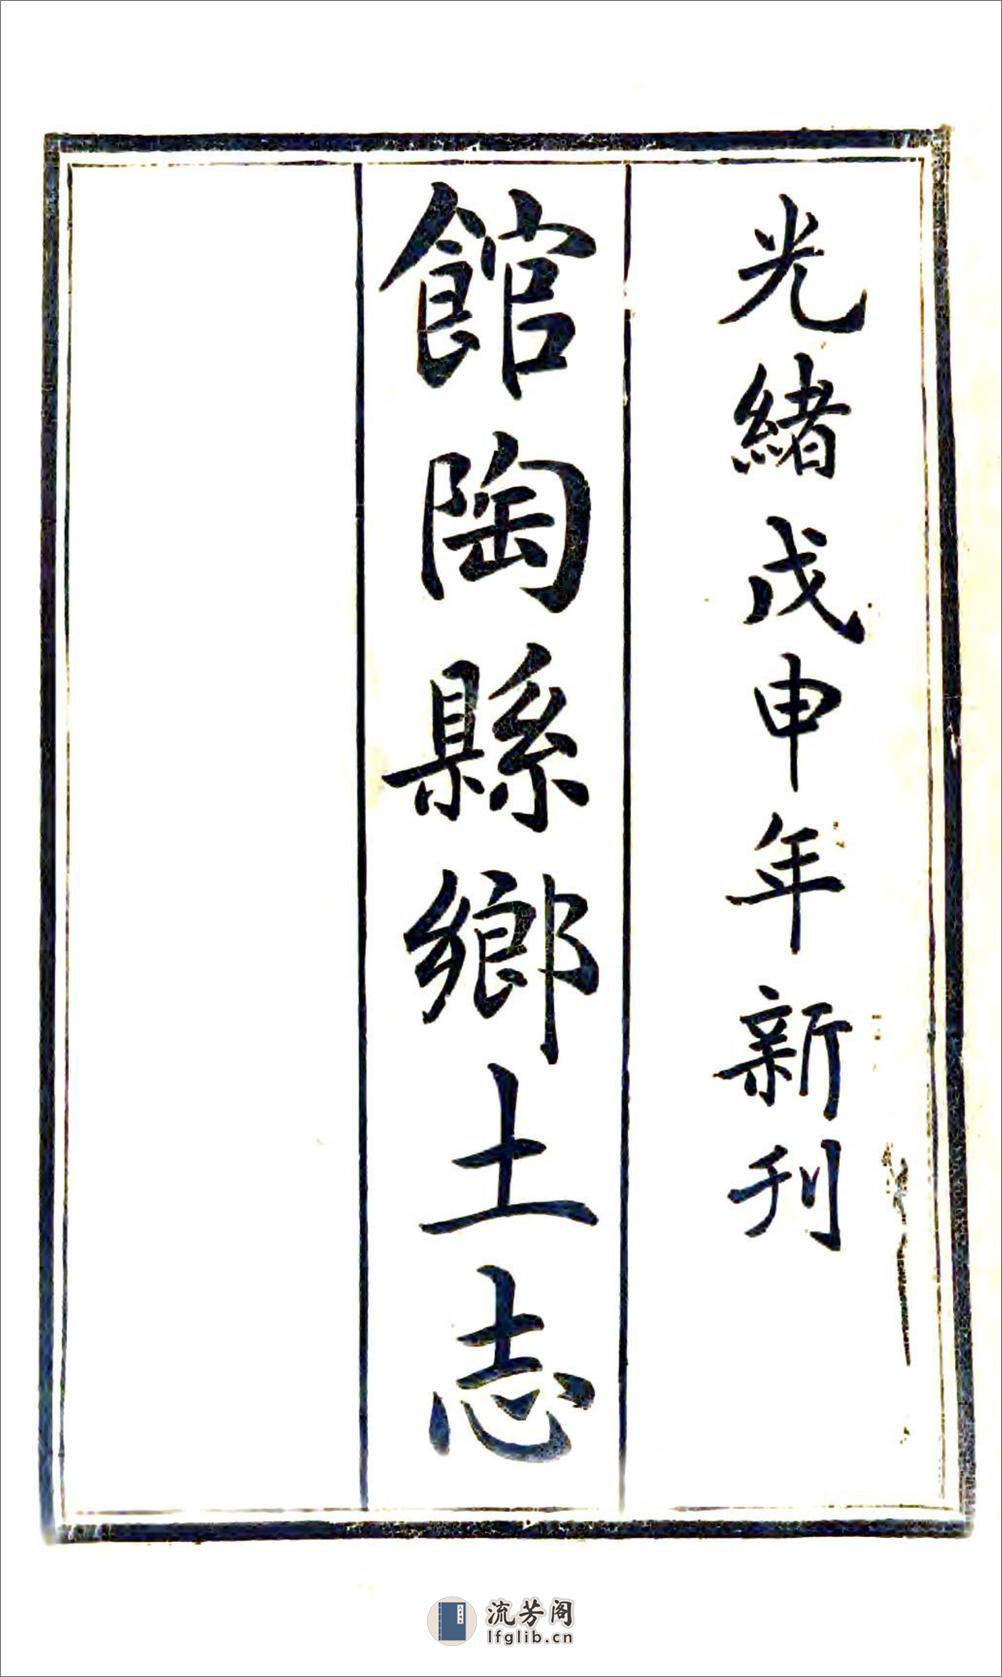 光緒戊申年新刊
館陶縣鄉土志
流芳阁
lfglib.cn